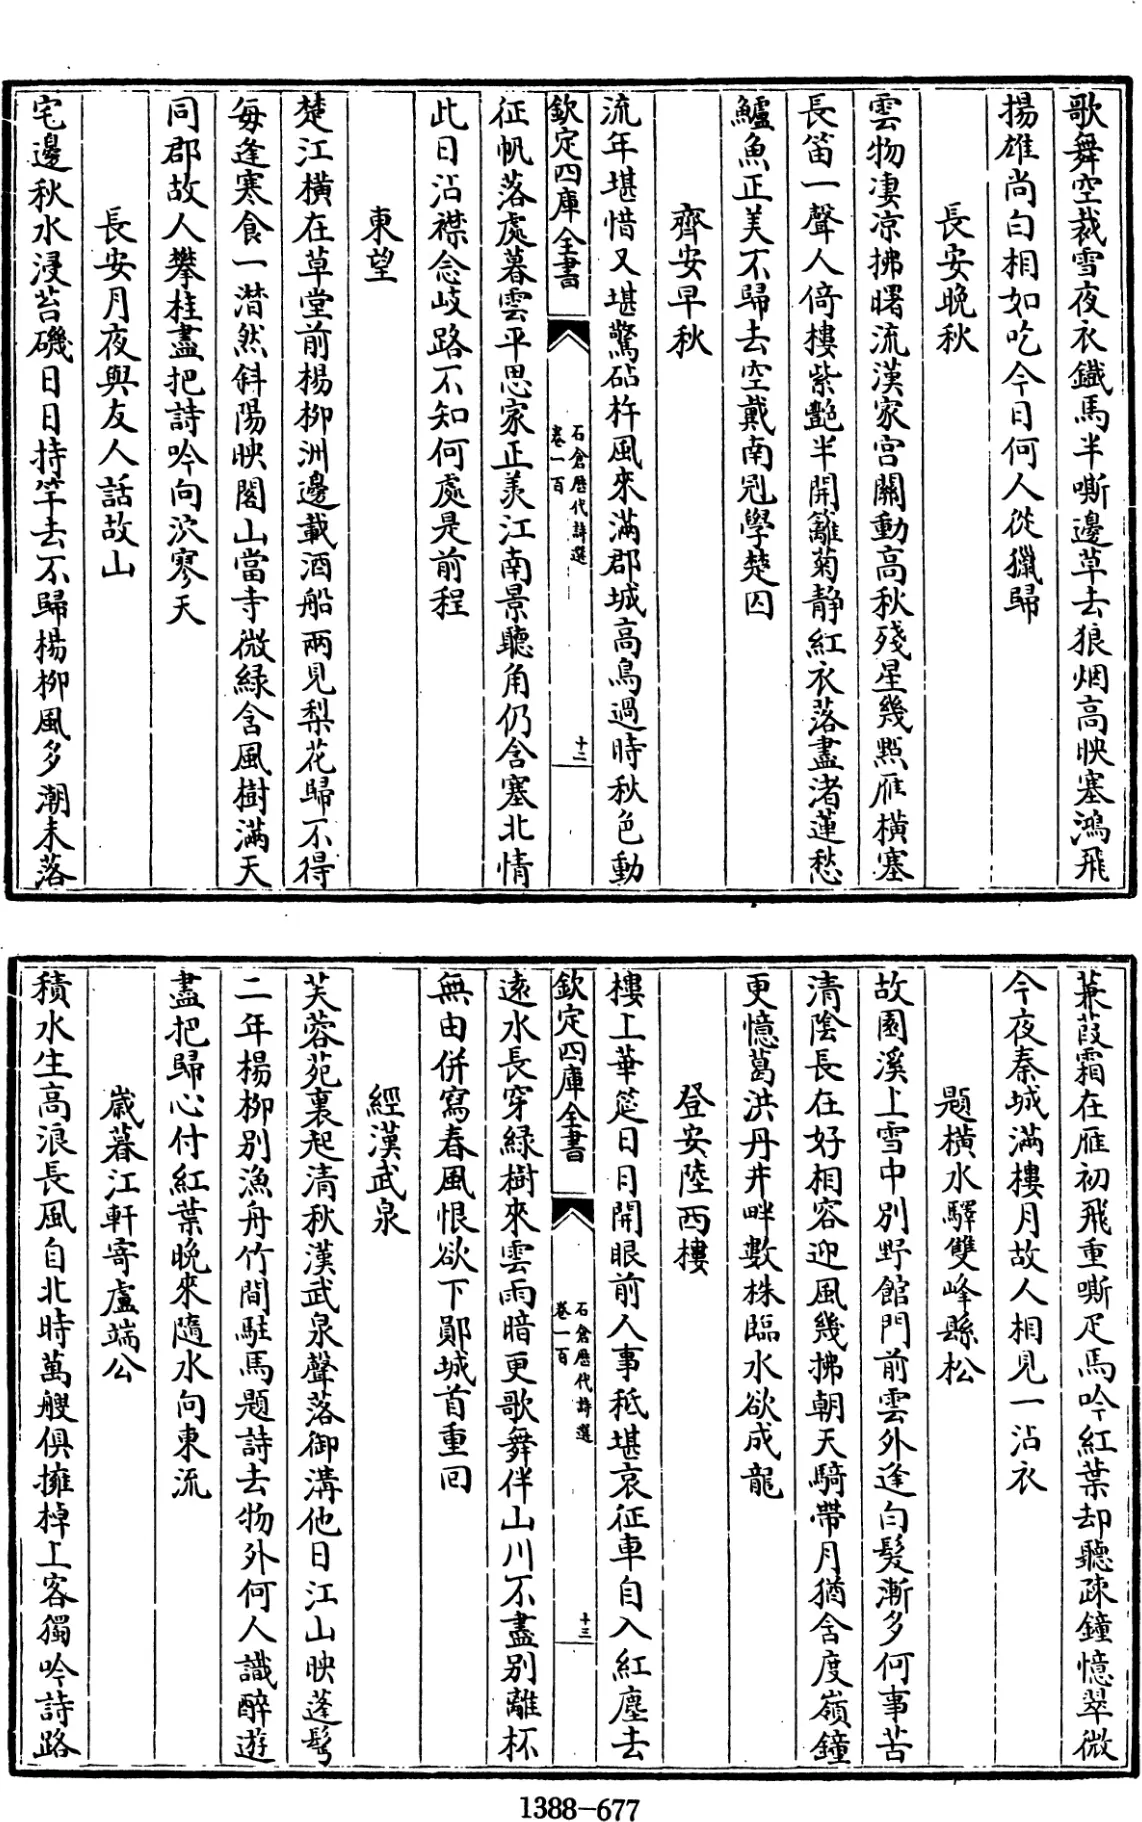 歌舞空裁雪夜衣鐵馬半嘶邊草去狼烟高映塞鴻飛
揚雄尚白相如吃今日何人從獵歸
長安晚秋
雲物凄凉拂曙流漢家宫闕動高秋殘星幾㸃雁橫塞
長笛一聲人倚樓紫艶半開籬菊靜紅衣落盡渚蓮愁
鱸魚正美不歸去空戴南冠學楚囚
齊安早秋
流年堪惜又堪驚砧杵風來滿郡城高鳥過時秋色動
欽定四庫全書
石倉歷代詩選
卷一百
十二
征帆落處暮雲平思家正羨江南景聽角仍含塞北情
此日沾襟念岐路不知何處是前程
東望
楚江橫在草堂前楊柳洲邊載酒船兩見梨花歸不得
每逢寒食一潸然斜陽映閣山當寺微綠含風樹滿天
同郡故人攀桂盡把詩吟向泬寥天
長安月夜與友人話故山
宅邊秋水浸苔磯日日持竿去不歸楊柳風多潮未落
蒹葭霜在雁初飛重嘶疋馬吟紅葉却聽疎鐘憶翠微
今夜秦城滿樓月故人相見一沾衣
題橫水驛雙峰縣松
故園溪上雪中別野館門前雲外逢白髪漸多何事苦
清陰長在好相容迎風幾拂朝天騎帶月猶含度嶺鐘
更憶葛洪丹井畔數株臨水欲成龍
登安陸西樓
樓上華筵日日開眼前人事秪堪哀征車自入紅塵去
欽定四庫全書
石倉歷代詩選
卷一百
十三
遠水長穿綠樹來雲雨暗更歌舞伴山川不盡別離杯
無由併寫春風恨欲下鄖城首重回
經漢武泉
芙蓉苑裏起清秋漢武泉聲落御溝他日江山映蓬鬢
二年楊柳別漁舟竹間駐馬題詩去物外何人識醉遊
盡把歸心付紅葉晚來隨水向東流
歲暮江軒寄盧端公
積水生高浪長風自北時萬艘俱擁棹上客獨吟詩路
1388-677